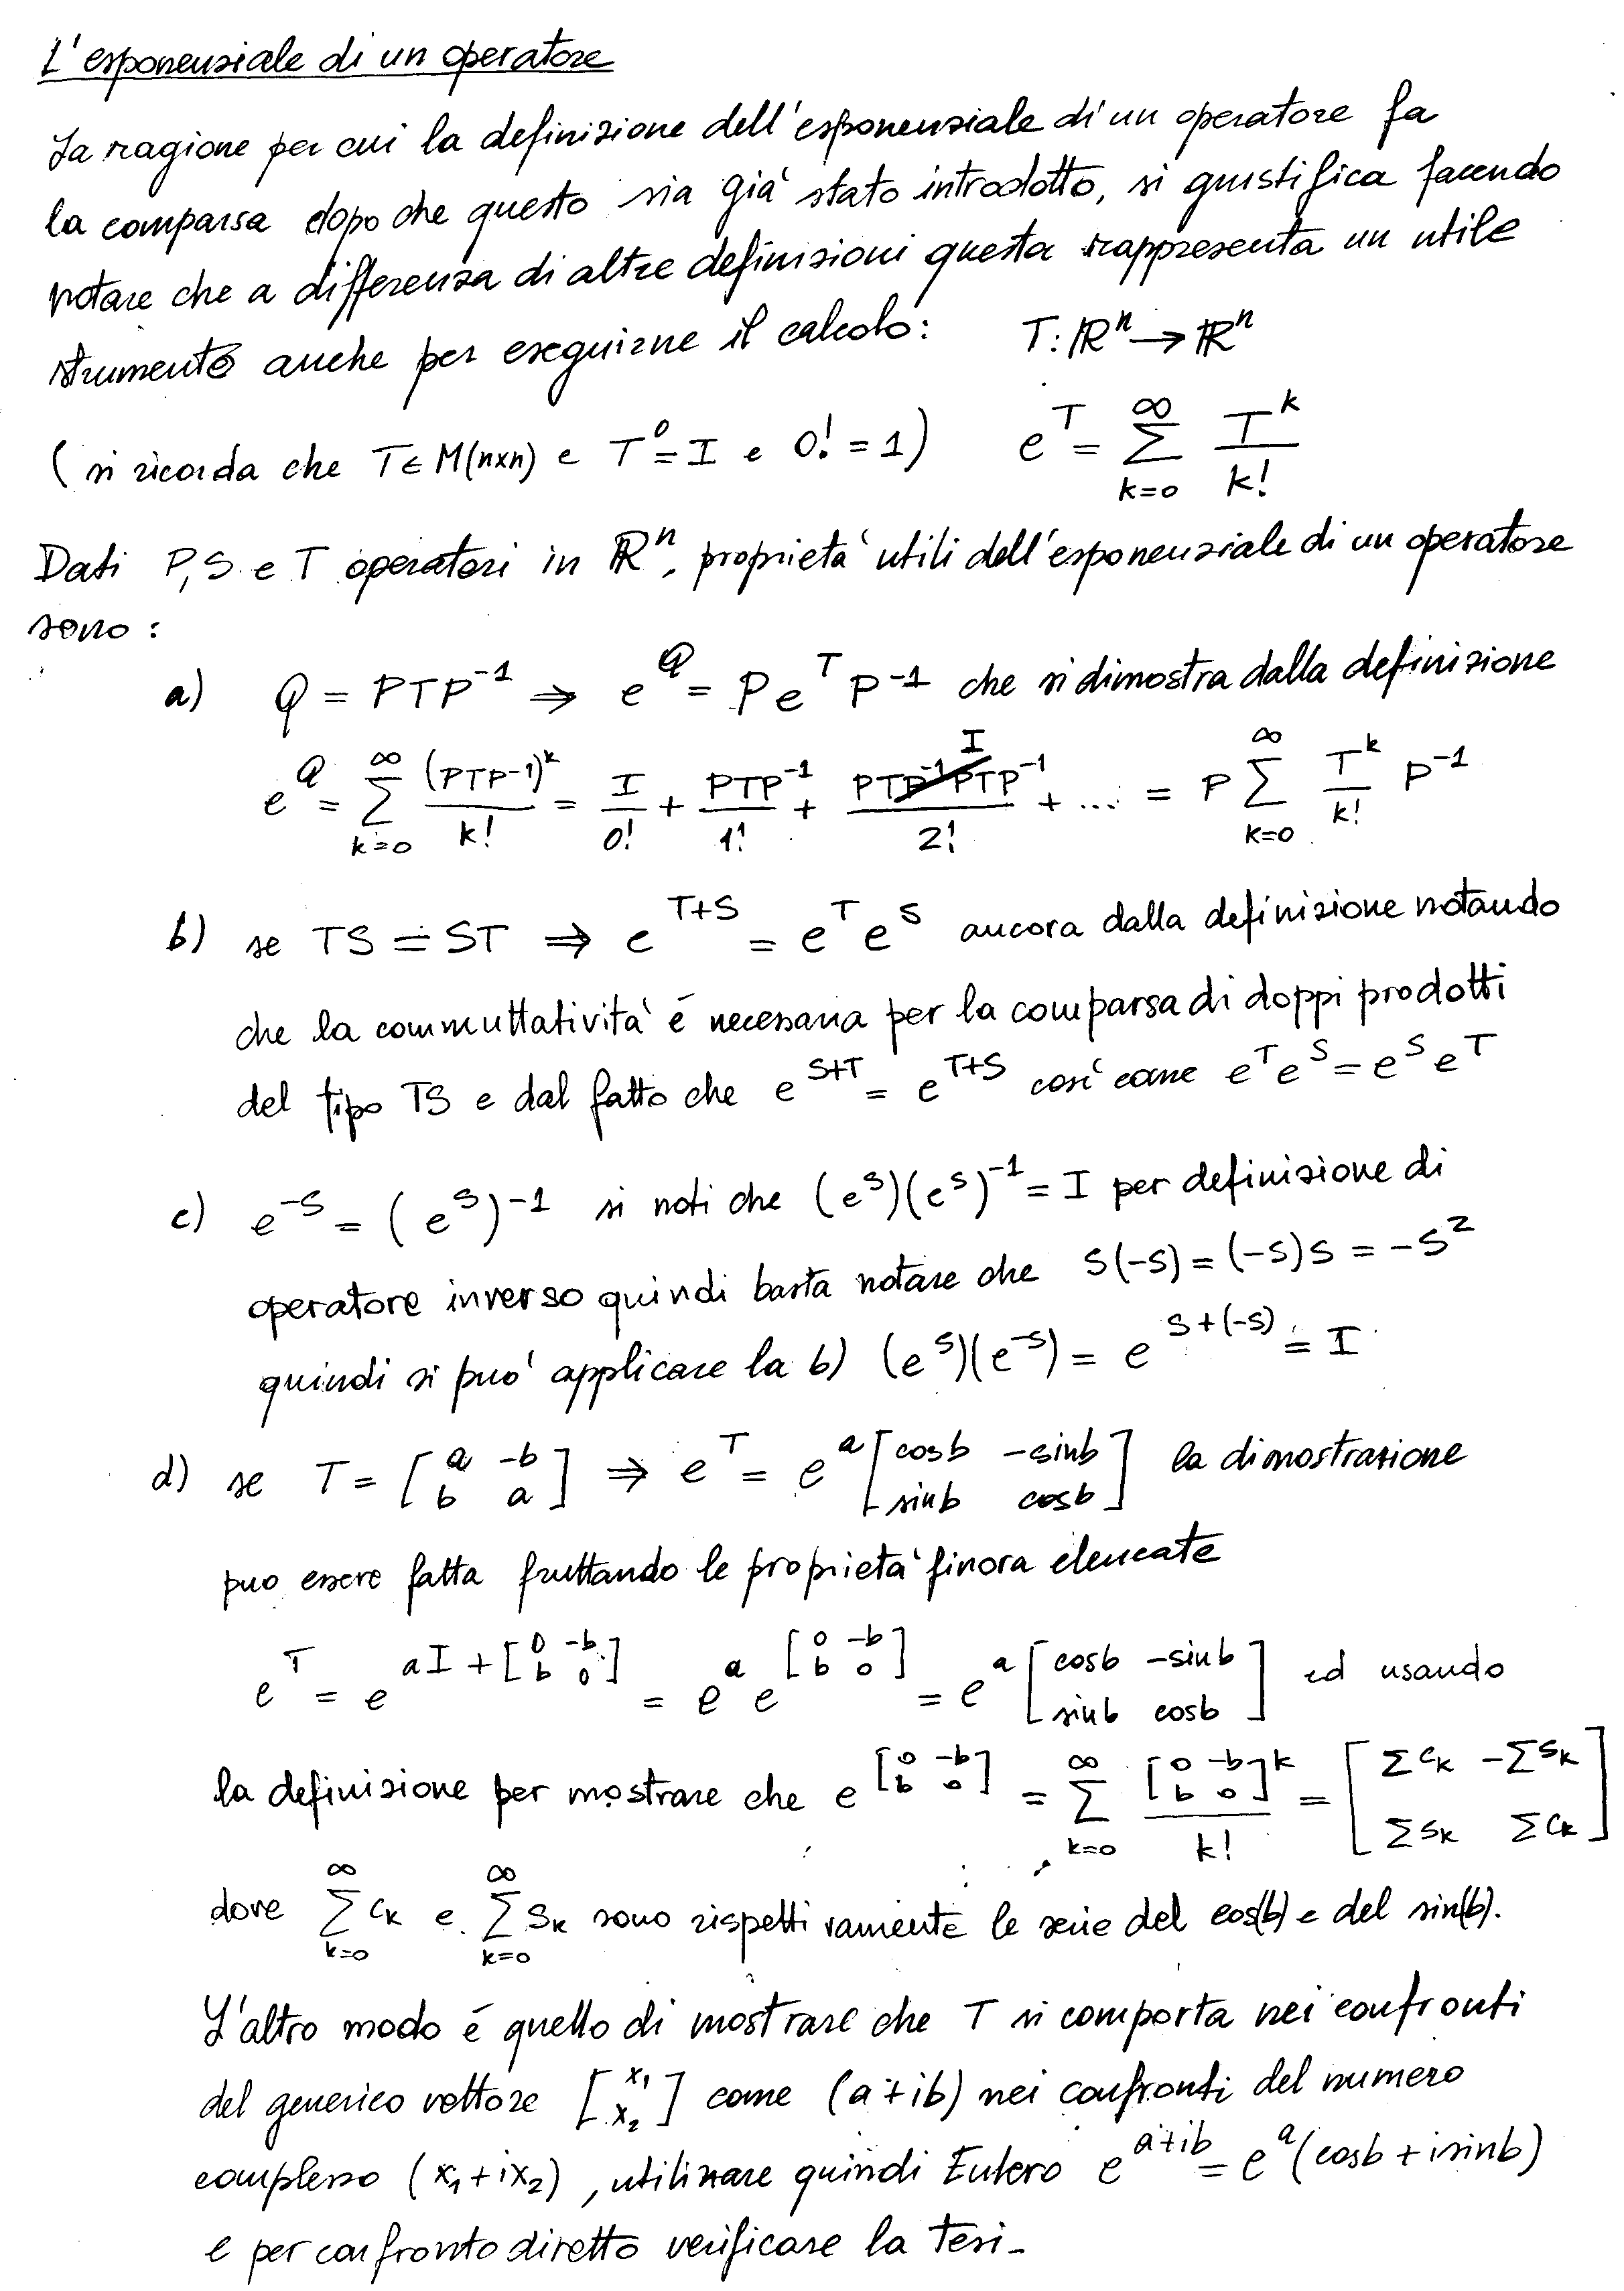 L'esponenziale di un operatore
La ragione per cui la definizione dell'esponenziale di un operatore fa
la comparsa dopo che questo sia già stato introdotto, si giustifica facendo
notare che a differenza di altre definizioni questa rappresenta un utile
strumento anche per eseguirne il calcolo: T: ℝⁿ → ℝⁿ
(si ricorda che T ∈ M(n×n) e T⁰ = I e 0! = 1) e^T = ∑_{k=0}^{∞} T^k / k!
Dati P, S e T operatori in ℝⁿ, proprietà utili dell'esponenziale di un operatore
sono:
a) Q = PTP⁻¹ ⇒ e^Q = P e^T P⁻¹ che si dimostra dalla definizione
e^Q = ∑_{k=0}^{∞} (PTP⁻¹)^k / k! = I/0! + PTP⁻¹/1! + PTP⁻¹PTP⁻¹/2! + ... = P ∑_{k=0}^{∞} T^k/k! P⁻¹
I
b) se TS = ST ⇒ e^{T+S} = e^T e^S ancora dalla definizione notando
che la commuttatività è necessaria per la comparsa di doppi prodotti
del tipo TS e dal fatto che e^{S+T} = e^{T+S} così come e^T e^S = e^S e^T
c) e^{-S} = (e^S)^{-1} si noti che (e^S)(e^S)^{-1} = I per definizione di
operatore inverso quindi basta notare che S(-S) = (-S)S = -S²
quindi si può applicare la b) (e^S)(e^{-S}) = e^{S+(-S)} = I
d) se T = [a -b; b a] ⇒ e^T = e^a [cosb -sinb; sinb cosb] la dimostrazione
puo essere fatta fruttando le proprietà finora elencate
e^T = e^{aI + [0 -b; b 0]} = e^a e^{[0 -b; b 0]} = e^a [cosb -sinb; sinb cosb] ed usando
la definizione per mostrare che e^{[0 -b; b 0]} = ∑_{k=0}^{∞} [0 -b; b 0]^k / k! = [∑c_k -∑s_k; ∑s_k ∑c_k]
dove ∑_{k=0}^{∞} c_k e ∑_{k=0}^{∞} s_k sono rispettivamente le serie del cos(b) e del sin(b).
L'altro modo è quello di mostrare che T si comporta nei confronti
del generico vettore [x₁; x₂] come (a+ib) nei confronti del numero
complesso (x₁+ix₂), utilizzare quindi Eulero e^{a+ib} = e^a (cosb + isinb)
e per confronto diretto verificare la tesi-